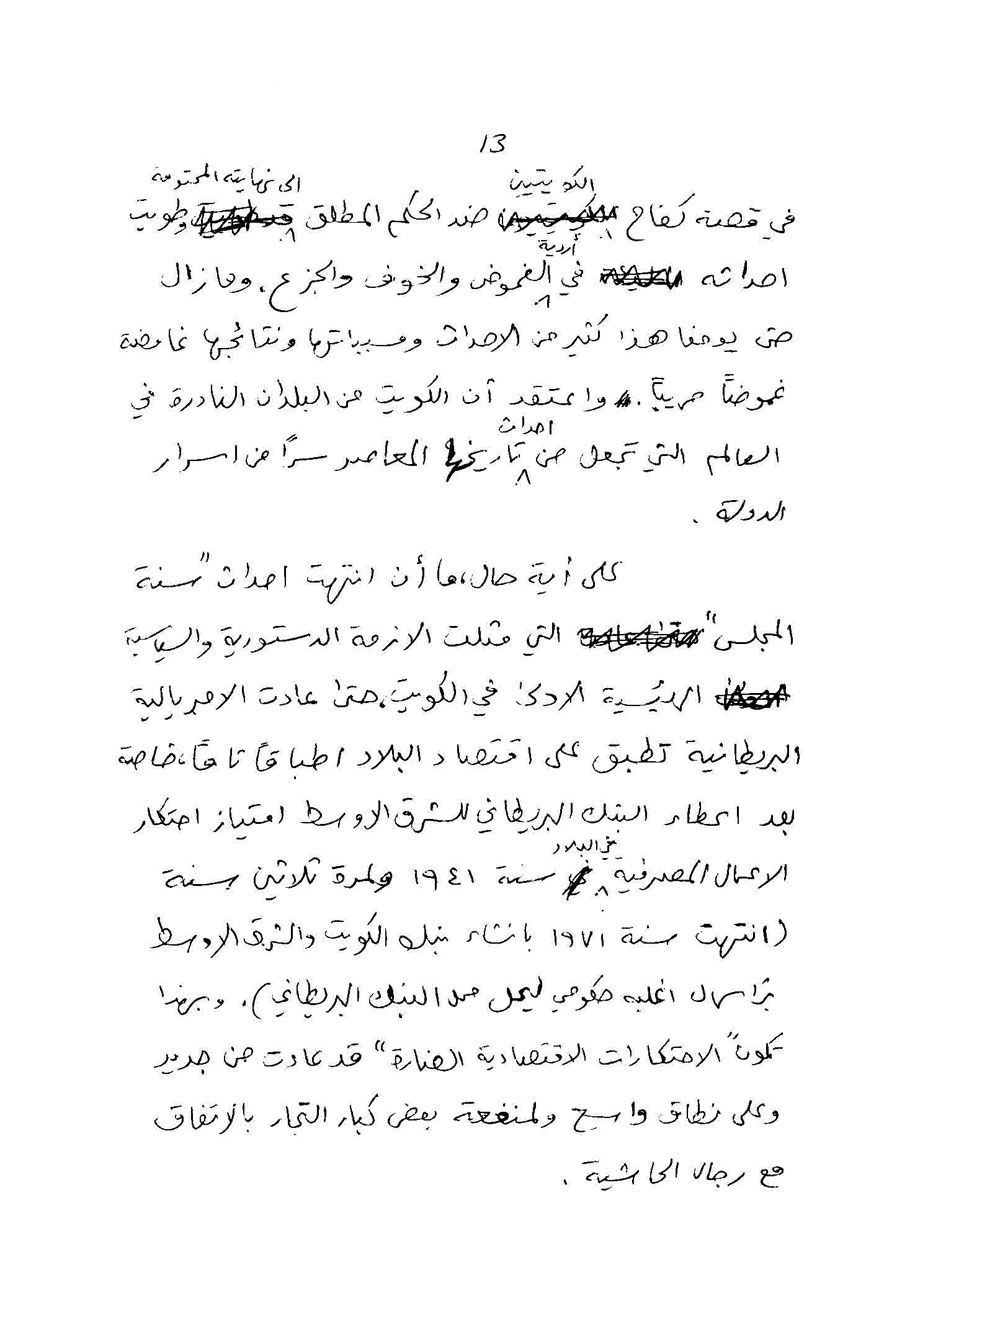 13
الى نهايته المحتومة
الكويتيين
في قصة كفاح ضد الحكم المطلق وطويت
أردية
احداثه في الغموض والخوف والجزع. ومازال
حتى يومنا هذا كثير من الاحداث ومسبباتها ونتائجها غامضة
غموضاً مريباً. واعتقد أن الكويت من البلدان النادرة في
احداث
العالم التي تجعل من تاريخها المعاصر سراً من اسرار
الدولة.
على أية حال، ما أن انتهت احداث "سنة
المجلس" التي مثلت الازمة الدستورية والسياسية
الرئيسية الاولى في الكويت، حتى عادت الامبريالية
البريطانية تطبق على اقتصاد البلاد اطباقاً تاماً، خاصة
بعد اعطاء البنك البريطاني للشرق الاوسط امتياز احتكار
في البلاد
الاعمال المصرفية سنة ١٩٤١ ولمدة ثلاثين سنة
(انتهت سنة ١٩٧١ بانشاء بنك الكويت والشرق الاوسط
برأسمال اغلبه حكومي ليحل محل البنك البريطاني). وبهذا
تكون "الاحتكارات الاقتصادية الضارة" قد عادت من جديد
وعلى نطاق واسع ولمنفعة بعض كبار التجار بالاتفاق
مع رجال الحاشية.